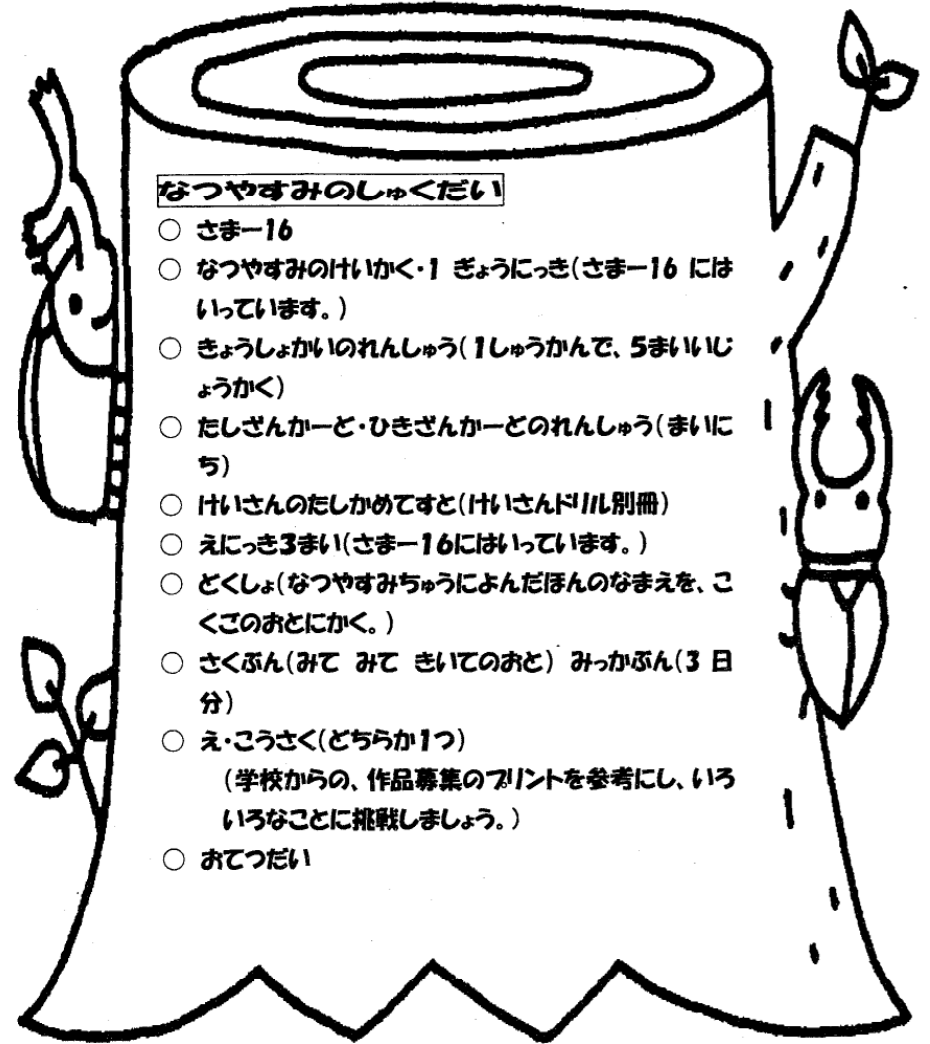 なつやすみのしゅくだい
○ さまー16
○ なつやすみのけいかく・1 ぎょうにっき(さまー16 には
いっています。)
○ きょうしょかいのれんしゅう(1しゅうかんで、5まいいじ
ょうかく)
○ たしざんかーど・ひきざんかーどのれんしゅう(まいに
ち)
○ けいさんのたしかめてすと(けいさんドリル別冊)
○ えにっき3まい(さまー16にはいっています。)
○ どくしょ(なつやすみちゅうによんだほんのなまえを、こ
くごのおとにかく。)
○ さくぶん(みて みて きいてのおと) みっかぶん(3 日
分)
○ え・こうさく(どちらか1つ)
(学校からの、作品募集のプリントを参考にし、いろ
いろなことに挑戦しましょう。)
○ おてつだい